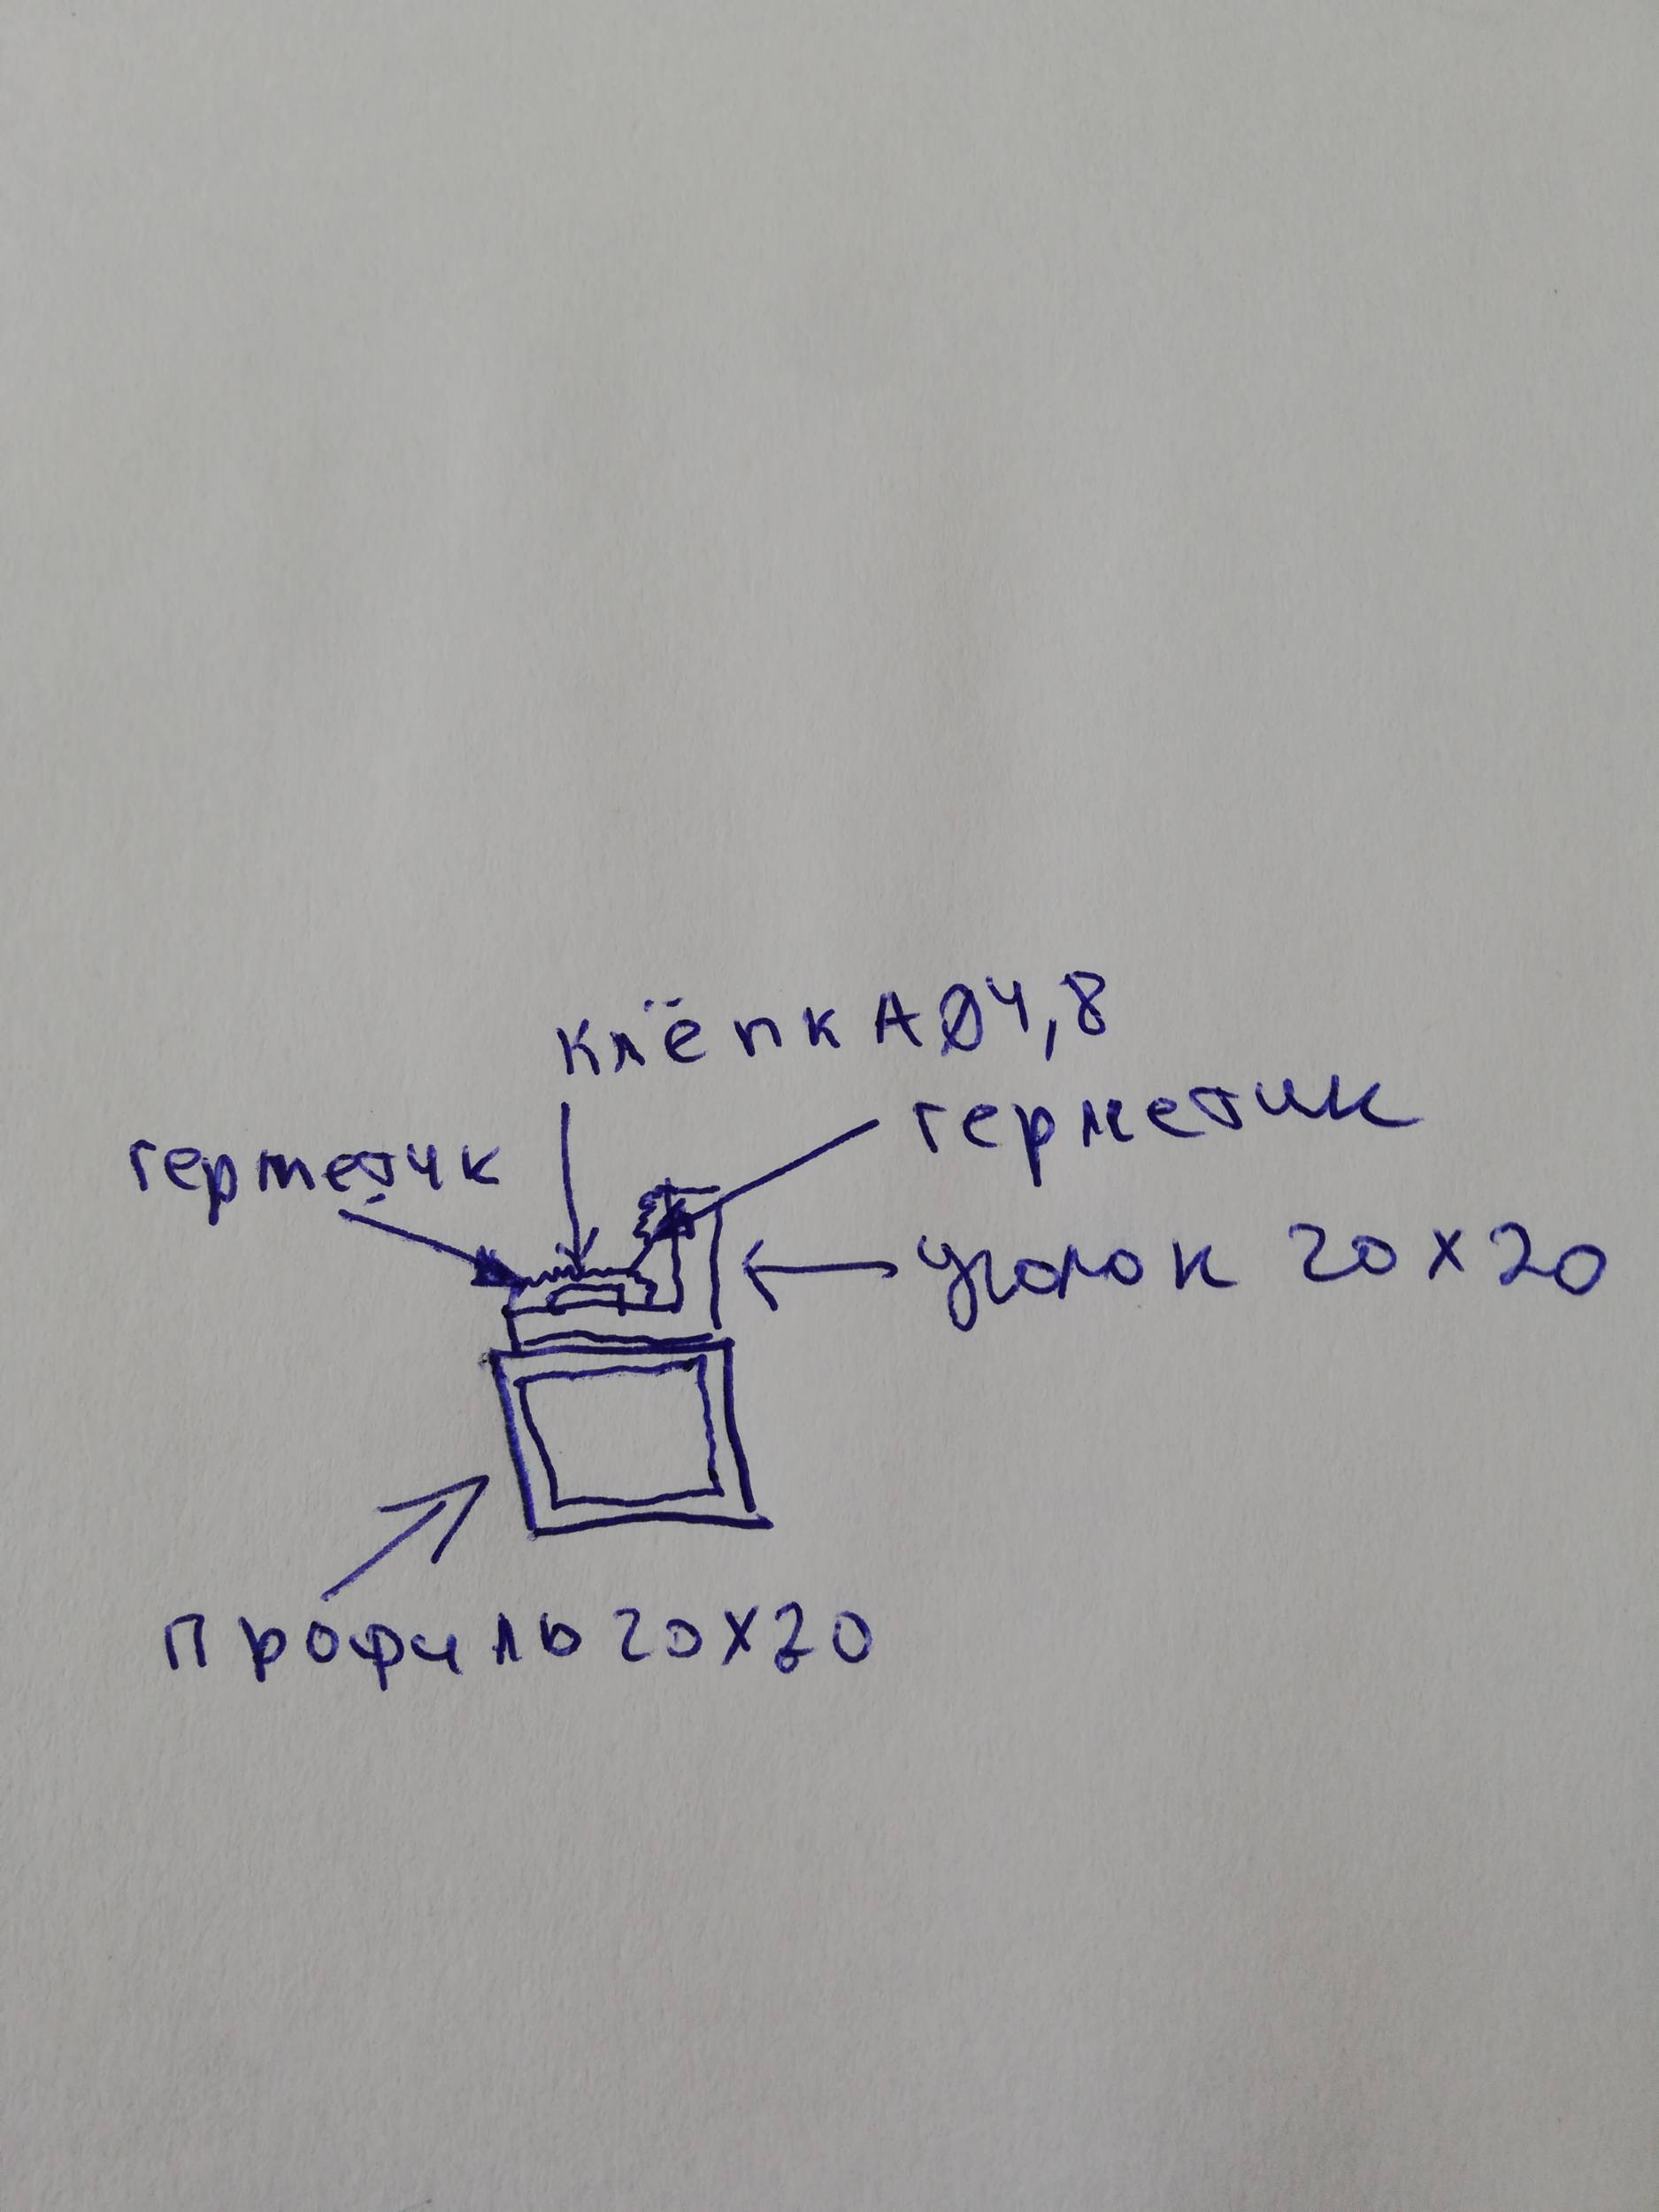 клёпкА Ø4,8
герметик
герметик
уголок 20х20
профиль 20х20